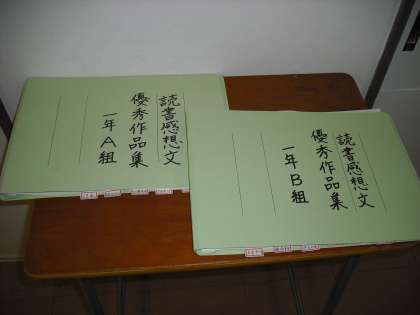 読書感想文
優秀作品集
一年A組
読書感想文
優秀作品集
一年B組